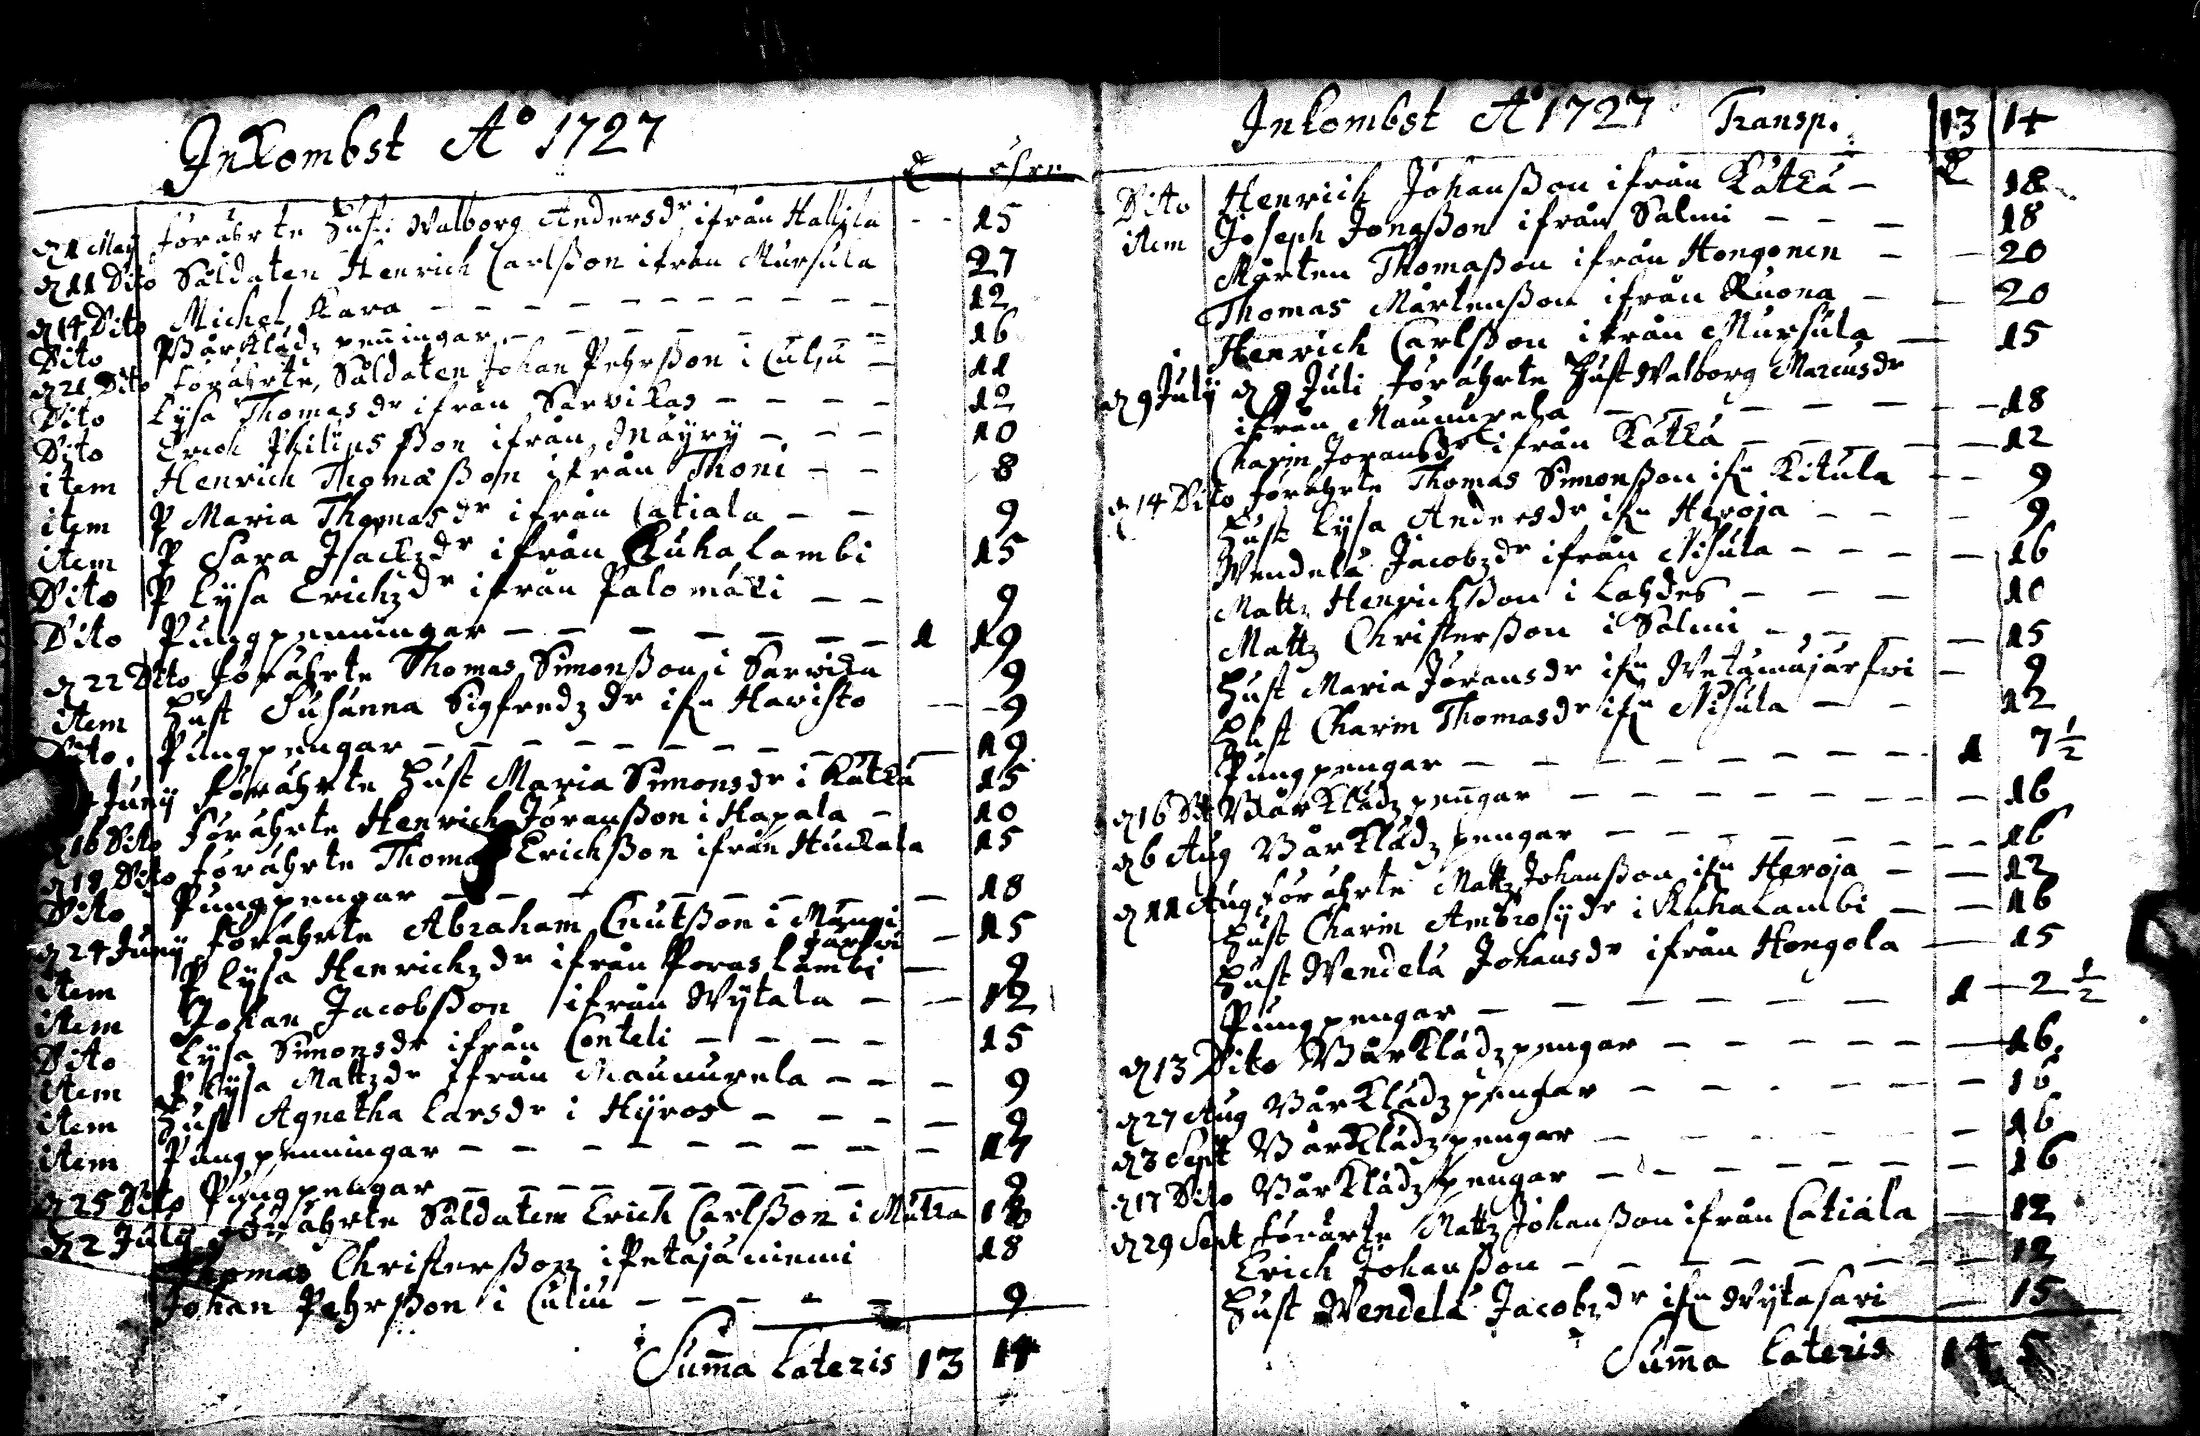 Inkombst Aº 1727
D 1 May förährte Hust: Walborg Andersdr ifrån Hallila - - 15
D 11 Dito Såldaten Henrich Carlßon ifrån Mursula 27
D 14 Dito Michel Kara - - - - - - - - - - 12
Dito Wårklädz penningar - - - - - - - - 16
D 21 Dito förährte, Såldaten Johan Pehrßon i Culju - 11
Dito Lysa Thomasdr ifrån Sarvikas - - - - 12
Dito Erich Philipsßon ifrån Mäyry - - - 10
item Henrich Thomæßon ifrån Thoni - - 8
item P Maria Thomasdr ifrån Catiala - - 9
item P Sara Isackzdr ifrån Kuhalambi 15
Dito P Lysa Erichzdr ifrån Palomäki - - 9
Dito Pungpenningar - - - - - - - 1 19
D 22 Dito förährte Thomas Simonßon i Sarvika 9
item Hust Susanna Sigfredzdr ifn Havisto - - 9
Dito. Pungpengar - - - - - - - - - 19
Juny förährte Hust Maria Simonsdr i Kätkä 15
D 16 Dito förährte Henrich Jöranßon i Hapala - 10
D 19 Dito förährte Thomas Erichßon ifrån Huckala 15
Dito Pungpengar - - - - - - - - 18
D 24 Juny förährte Abraham Cnutßon i
järfwi - 15
item P Lysa Henrichzdr ifrån Poraslambi - 9
item Johan Jacobßon ifrån Wytala - - 12
Dito Lysa Simonsdr ifrån Conteli - - - - 15
item P Lysa Mattzdr ifrån Maunuxela - - - 9
item Hust Agnetha Larsdr i Hyros - - - - 9
item Pungpenningar - - - - - - - - - 17
D 25 Dito Pungpengar - - - - - - - - 9
D 2 July förährte Såldaten Erich Carlßon i Mutka 18
Thomas Christerßon i Petäjäniemi 18
Johan Pehrßon i Culiu - - - - - 9
Summa Lateris 13 14
Inkombst Aº 1727 Transp. 13 14
Dito Henrich Johanßon ifrån Kätkä - 18
item Joseph Jonæßon ifrån Salmi - - - 18
Mårten Thomaßon ifrån Hongonen - - 20
Thomas Mårtenßon ifrån Ruona - - 20
Henrich Carlßon ifrån Mursula - 15
D 9 July D 9 Juli förährte Hust Walborg Marcusdr
ifrån Maunuxela - - - - - - - 18
Charin Joransdr ifrån Kätkä - - - - - 12
D 14 Dito förährte Thomas Simonßon ifn Kitula - - 9
Hust Lysa Andersdr ifn Heroja - - - 9
Wendela Jacobzdr ifrån Nisula - - - - 16
Mattz Henrichßon i Lahdes - - - 10
Mattz Christerßon i Salmi - - - - 15
Hust Maria Jöransdr ifn Wetämäjärfwi - 9
Hust Charin Thomasdr ifn Nisula - - 12
Pungpengar - - - - - - - - 1 7 1/2
D 16 Dit Wårklädz pengar - - - - - - - 16
D 6 Aug Wårklädz pengar - - - - - - - - 16
D 11 Aug förährte Mattz Johanßon ifn Heroja - - 12
Hust Charin Ambrosydr i Kuhalambi - - 16
Hust Wendela Johansdr ifrån Hongola - 15
Pungpengar - - - - - - - 1 - 2 1/2
D 13 Dito Wårklädzpengar - - - - - - 16
D 27 Aug Wårklädz pengar - - - - - - 16
D 3 Sept Wårklädzpengar - - - - - - 16
D 17 Dito Wårklädz pengar - - - - - - - 16
D 29 Sept förärte Mattz Johanßon ifrån Catiala - 12
Erich Johanßon - - - - - - - - 12
Hust Wendela Jacobzdr ifn Wytasari - 15
Summa Lateris 14 5